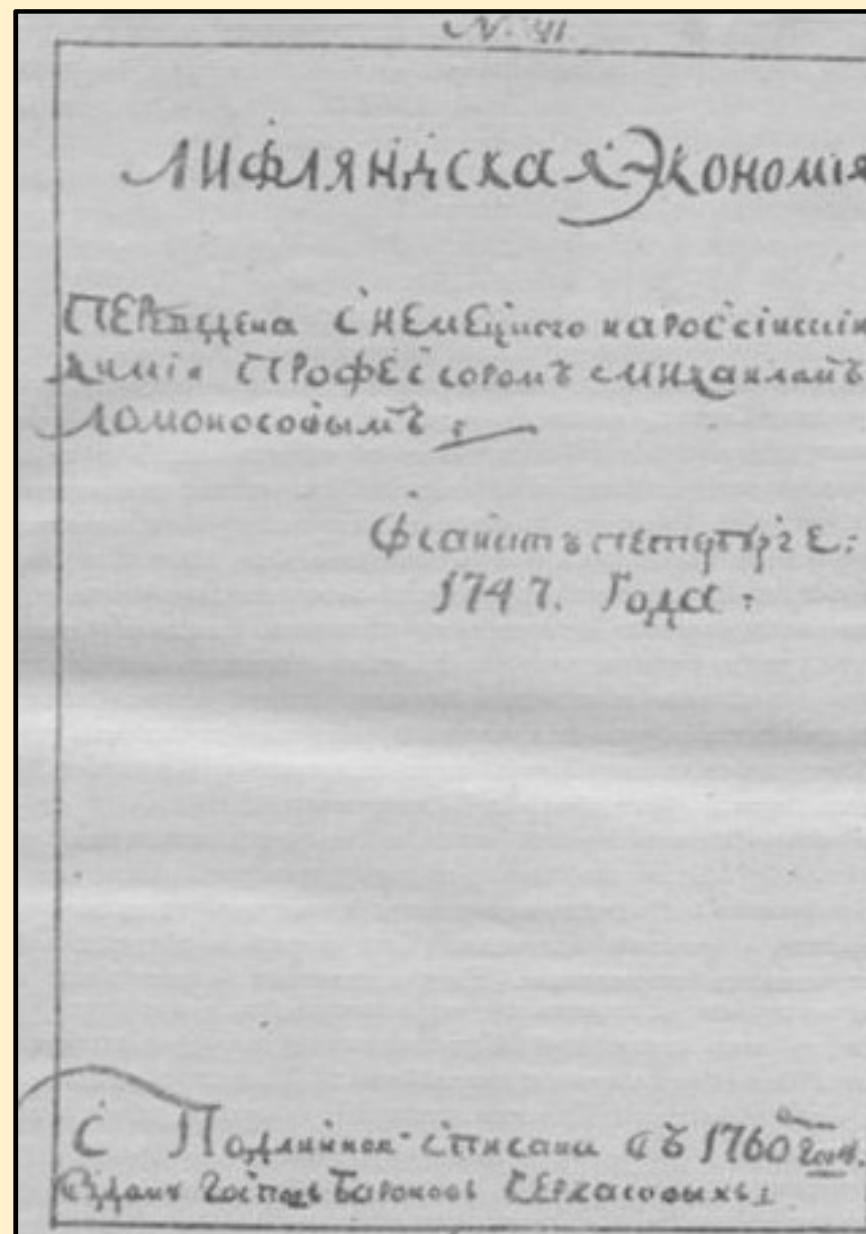 N. VI.
Лифляндская Экономія
Переведена с немецкого на россіискіи
химіи Профессоромъ Михаилам
Ломоносовымъ:
Всанктъпетербурге:
1747. Года:
С Подлинной списана въ 1760 годе.
Вдоме Господъ Бароновъ Черкасовыхъ: